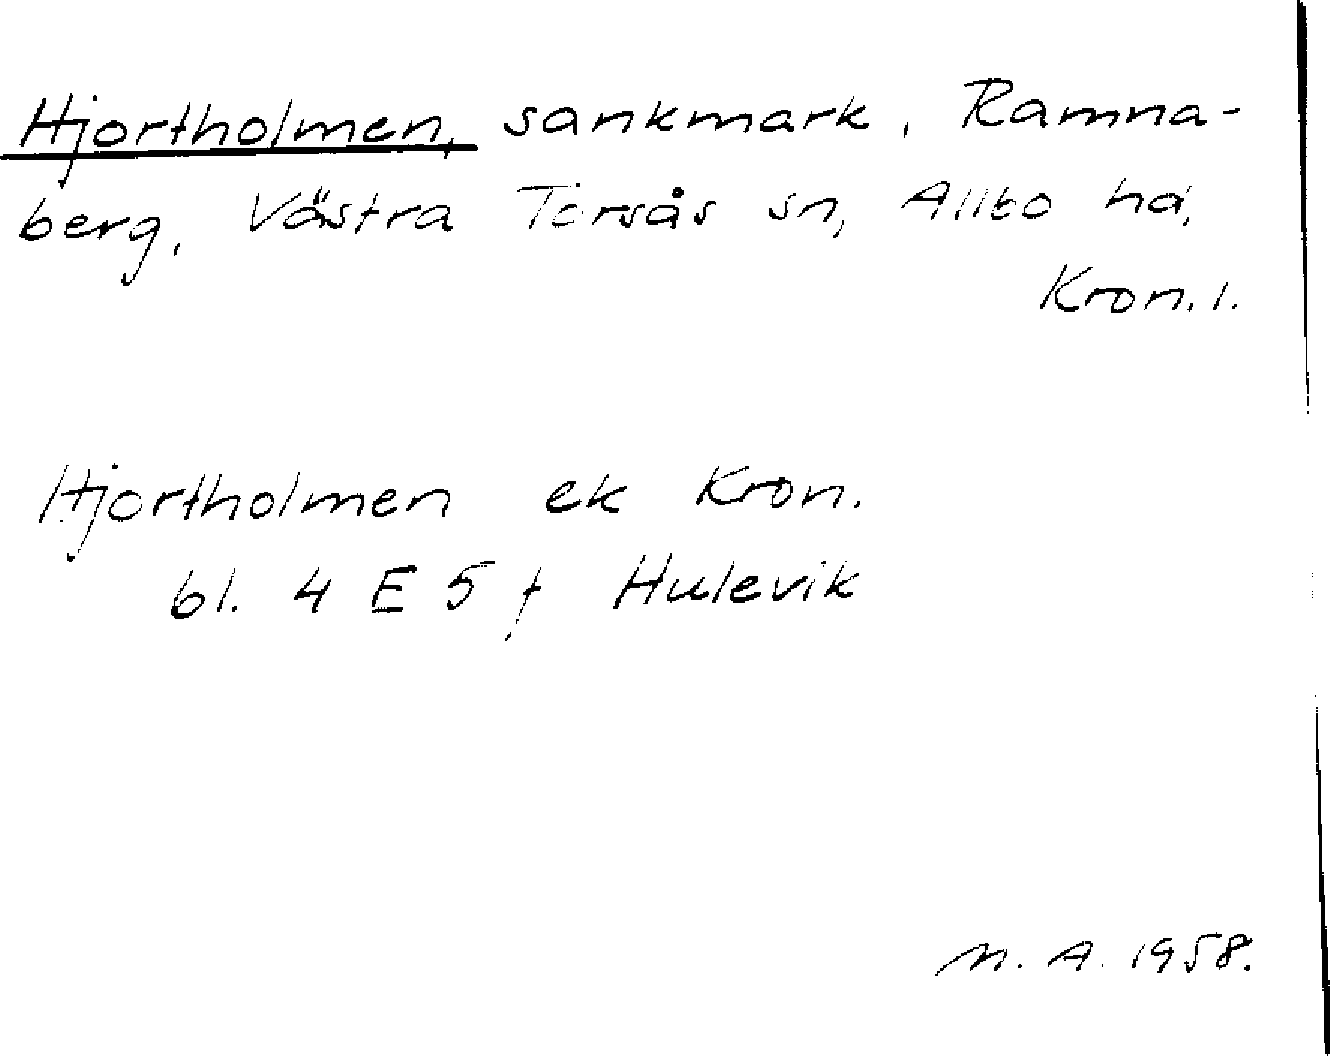 Hjortholmen, sankmark, Ramna-
berg, Västra Torsås sn, Allbo hd,
Kron. l.
Hjortholmen ek Kron.
bl. 4 E 5 f Hulevik
M. A. 1958.